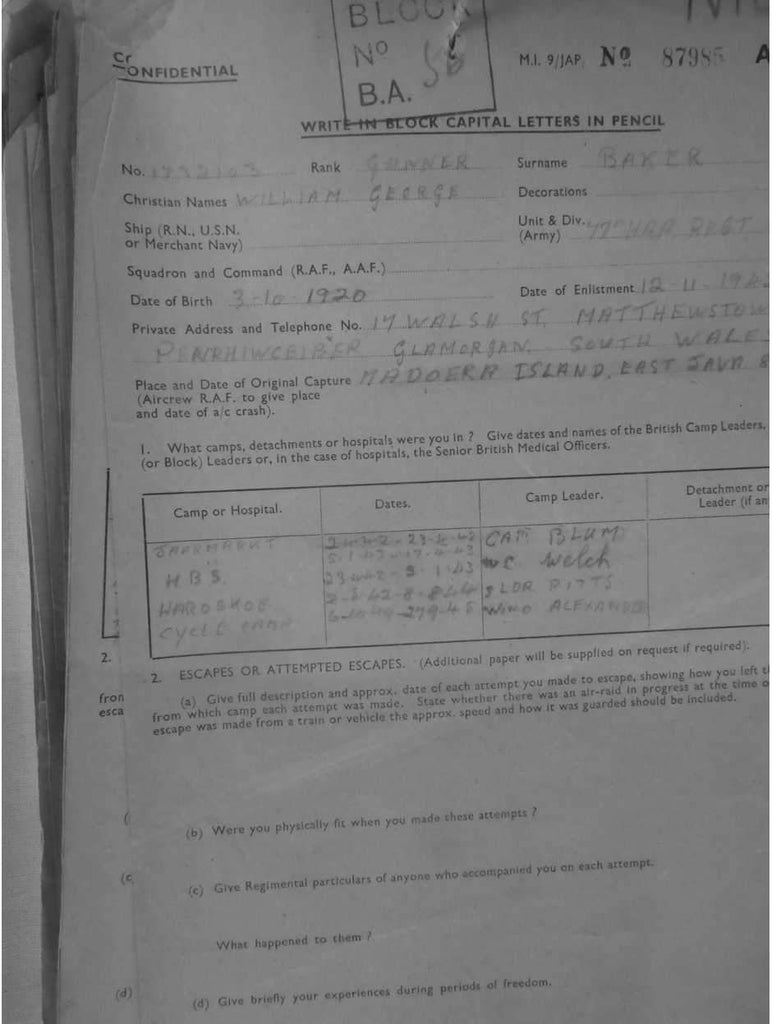 BLOCK
Nº 5B
B.A.
CONFIDENTIAL
M.I. 9/JAP. Nº 87985 A
WRITE IN BLOCK CAPITAL LETTERS IN PENCIL
No. Rank GUNNER Surname BAKER
Christian Names WILLIAM GEORGE Decorations
Ship (R.N., U.S.N.
or Merchant Navy)
Unit & Div. 77TH HAA REGT
(Army)
Squadron and Command (R.A.F., A.A.F.)
Date of Birth 3-10-1920 Date of Enlistment 12-11-194
Private Address and Telephone No. 17 WALSH ST. MATTHEWSTOW
PENRHIWCEIBER GLAMORGAN. SOUTH WALES
Place and Date of Original Capture MADOERA ISLAND, EAST JAVA 8
(Aircrew R.A.F. to give place
and date of a/c crash).
1. What camps, detachments or hospitals were you in ? Give dates and names of the British Camp Leaders,
(or Block) Leaders or, in the case of hospitals, the Senior British Medical Officers.
Camp or Hospital. Dates. Camp Leader. Detachment or
Leader (if an
JAARMARKT CAPT BLUM
5-1-43-17-4-43
H.B.S. W.C. Welch
S LDR PITTS
CYCLE CAMP WING ALEXANDER
2.
2. ESCAPES OR ATTEMPTED ESCAPES. (Additional paper will be supplied on request if required).
(a) Give full description and approx. date of each attempt you made to escape, showing how you left th
from which camp each attempt was made. State whether there was an air-raid in progress at the time o
escape was made from a train or vehicle the approx. speed and how it was guarded should be included.
fron
esca
(
(b) Were you physically fit when you made these attempts ?
(c
(c) Give Regimental particulars of anyone who accompanied you on each attempt.
What happened to them ?
(d)
(d) Give briefly your experiences during periods of freedom.